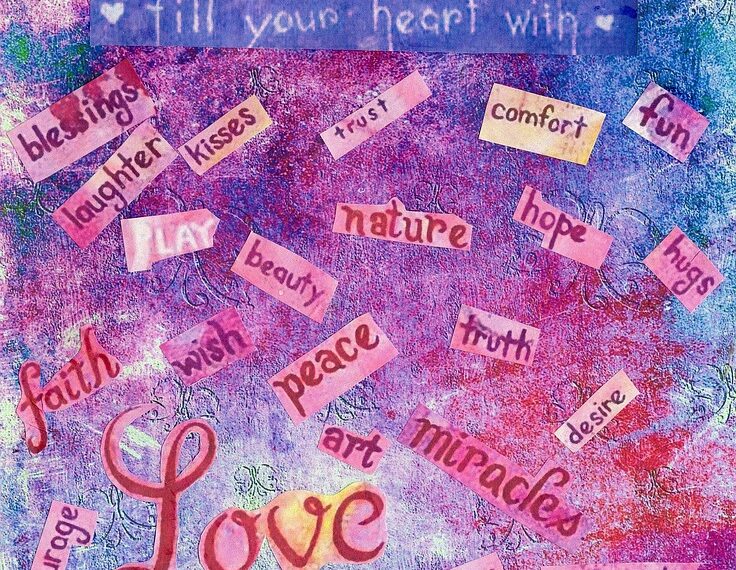 fill your heart with
blessings
kisses
trust
comfort
fun
laughter
PLAY
nature
hope
hugs
beauty
faith
wish
peace
truth
desire
art
miracles
Love
urage